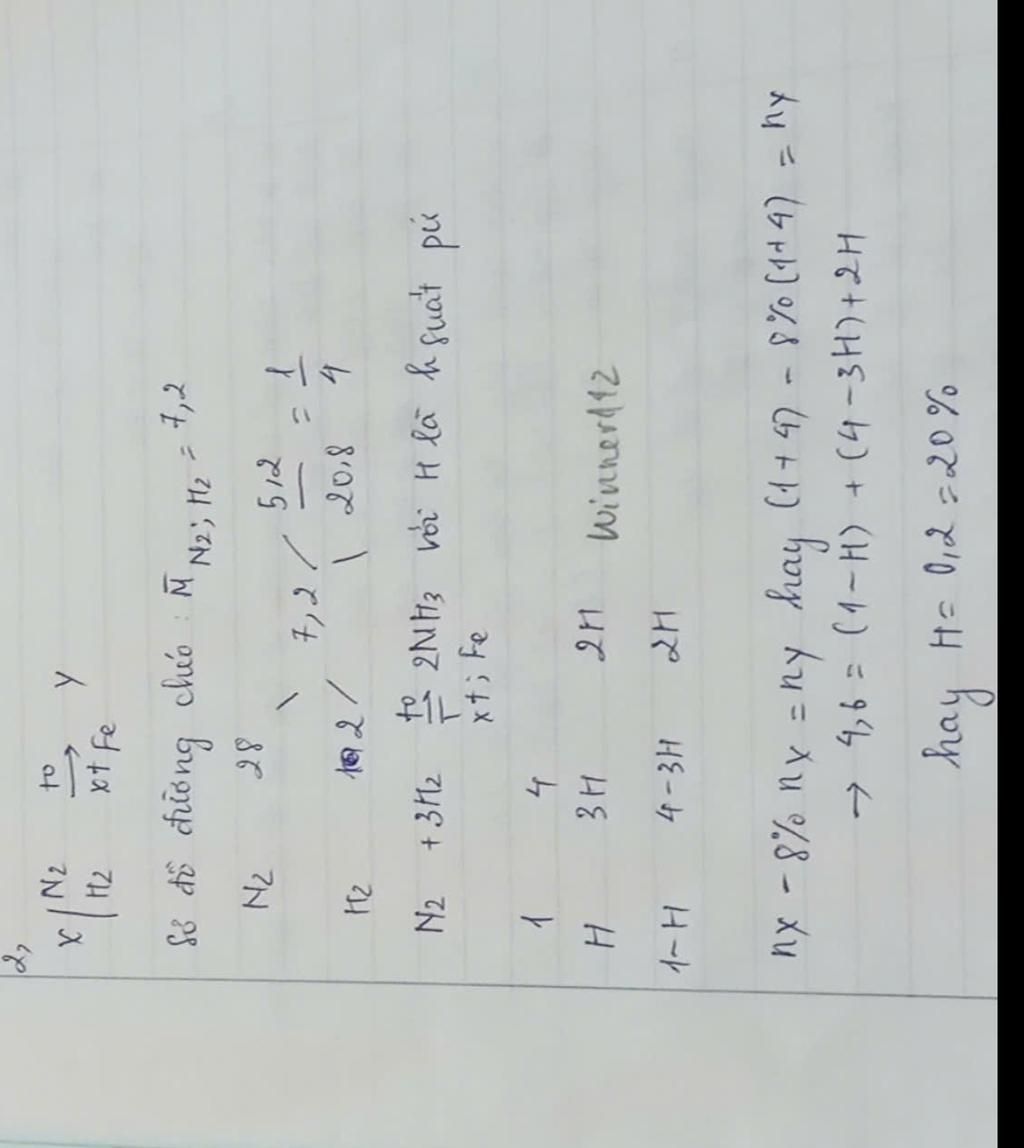 2,
X | N2 / H2 →(to / xt Fe) Y
Sơ đồ đường chéo : M̄ N2; H2 = 7,2
N2 28 \ / 5,2 1
7,2 — = —
H2 2 / \ 20,8 4
N2 + 3H2 ⇌(to / xt; Fe) 2NH3 với H là h suất pứ
1 4
H 3H 2H Winner112
1-H 4-3H 2H
nx - 8% nx = ny hay (1+4) - 8% (1+4) = ny
→ 4,6 = (1-H) + (4-3H) + 2H
hay H = 0,2 = 20%